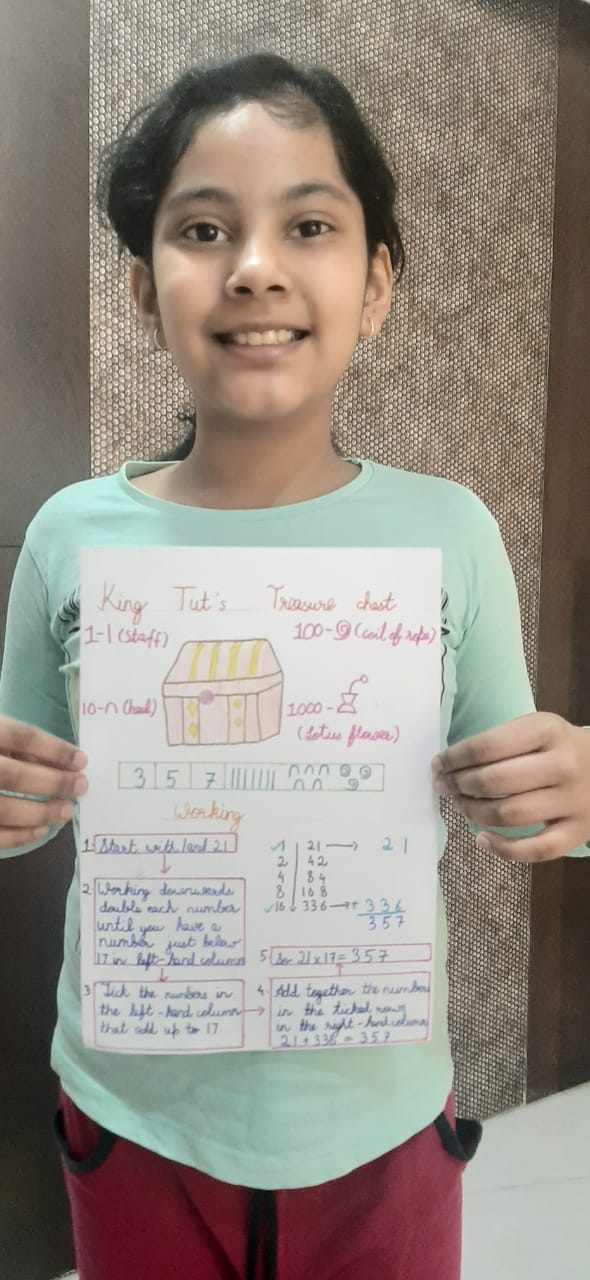 King Tut's Treasure chest
1-| (staff)
100- (coil of rope)
10-∩ (heel)
1000-
(Lotus flower)
3 5 7 ||||||| ∩∩∩∩∩
Working
1. Start with 1 and 21
2. Working downwards
double each number
until you have a
number just below
17 in left-hand column
3 Tick the numbers in
the left-hand column
that add up to 17
✓1 21 → 21
2 42
4 84
8 168
✓16 336 → +336
357
4. Add together the numbers
in the ticked rows
in the right-hand column
21+336 = 357
5 So 21x17= 357